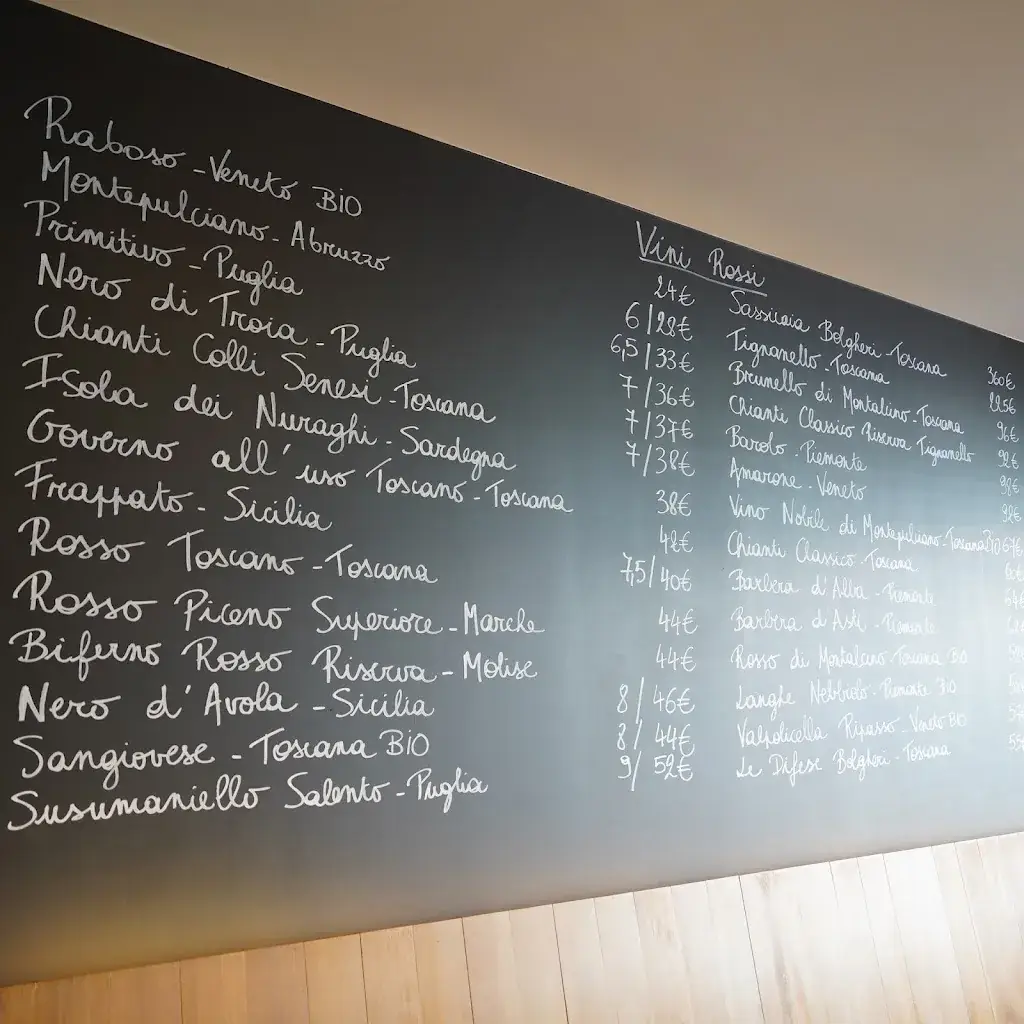 Vini Rossi
Raboso - Veneto BIO 24€
Montepulciano - Abruzzo 6/28€
Primitivo - Puglia 6,5/33€
Nero di Troia - Puglia 7/36€
Chianti Colli Senesi - Toscana 7/37€
Isola dei Nuraghi - Sardegna 7/38€
Governo all'uso Toscano - Toscana 38€
Frappato - Sicilia 42€
Rosso Toscano - Toscana 7,5/40€
Rosso Piceno Superiore - Marche 44€
Biferno Rosso Riserva - Molise 44€
Nero d'Avola - Sicilia 8/46€
Sangiovese - Toscana BIO 8/44€
Susumaniello Salento - Puglia 9/52€
Sassicaia Bolgheri - Toscana 360€
Tignanello - Toscana 225€
Brunello di Montalcino - Toscana 96€
Chianti Classico Riserva Tignanello 92€
Barolo - Piemonte
Amarone - Veneto
Vino Nobile di Montepulciano - Toscana BIO
Chianti Classico - Toscana
Barbera d'Alba - Piemonte
Barbera d'Asti - Piemonte
Rosso di Montalcino - Toscana BIO
Langhe Nebbiolo - Piemonte BIO
Valpolicella Ripasso - Veneto BIO
Le Difese Bolgheri - Toscana